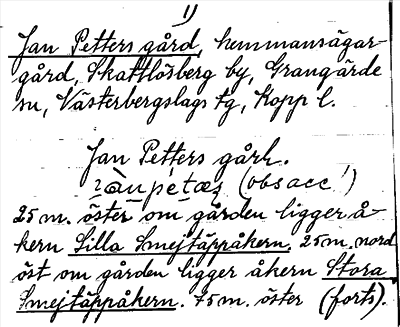 1)
Jan Petters gård, hemmansägar-
gård, Skattlösberg by, Grangärde
sn, Västerbergslags tg, Kopp l.
Jan Petters gårh.
(obs acc!)
25 m. öster om gården ligger å-
kern Lilla Smejtäppåkern. 25 m. nord
öst om gården ligger åkern Stora
Smejtäppåkern. 75 m. öster (forts).